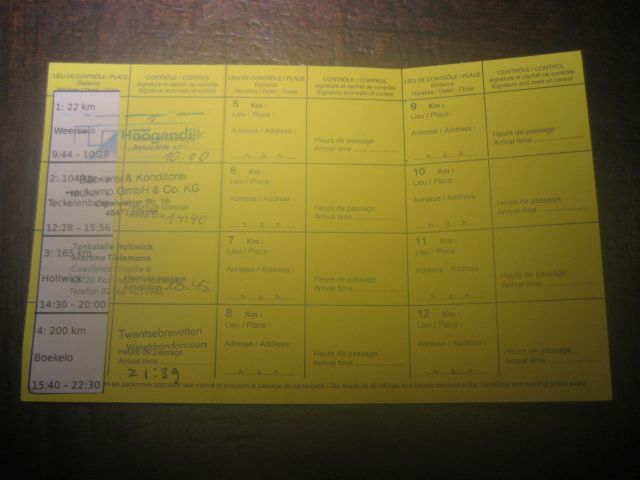 LIEU DE CONTRÔLE / PLACE
Distance
Horaires / Open - Close
CONTRÔLE / CONTROL
signature et cachet de contrôle
Signature and mark of control
LIEU DE CONTRÔLE / PLACE
Distance
Horaires / Open - Close
CONTRÔLE / CONTROL
signature et cachet de contrôle
Signature and mark of control
LIEU DE CONTRÔLE / PLACE
Distance
Horaires / Open - Close
CONTRÔLE / CONTROL
signature et cachet de contrôle
Signature and mark of control
1: 22 km
Weerselo
9:44 - 10:28
Hoogendijk
10:00
5 Km :
Lieu / Place :
Adresse / Address :
h à h
Heure de passage
Arrival time
9 Km :
Lieu / Place :
Adresse / Address :
h à h
Heure de passage
Arrival time
2: 104 km
Teckelenburg
12:28 - 15:56
Bäckerei & Konditorei
GmbH & Co. KG
Str. 16
14:40
6 Km :
Lieu / Place :
Adresse / Address :
h à h
Heure de passage
Arrival time
10 Km :
Lieu / Place :
Adresse / Address :
h à h
Heure de passage
Arrival time
3: 165 km
Holtwick
14:30 - 20:00
Tankstelle Holtwick
Martina
Coesfelder Straße 6
Telefon
18:45
7 Km :
Lieu / Place :
Adresse / Address :
h à h
Heure de passage
Arrival time
11 Km :
Lieu / Place :
Adresse / Address :
h à h
Heure de passage
Arrival time
4: 200 km
Boekelo
15:40 - 22:30
Twentsebrevetten
Wereldrandonneurs
Heure de passage
Arrival time
21:39
8 Km :
Lieu / Place :
Adresse / Address :
h à h
Heure de passage
Arrival time
12 Km :
Lieu / Place :
Adresse / Address :
h à h
Heure de passage
Arrival time
les personnes apposant leur cachet et prouvant le passage du participant / Our thanks to all officials and helpers involved in the controlling and running of this event